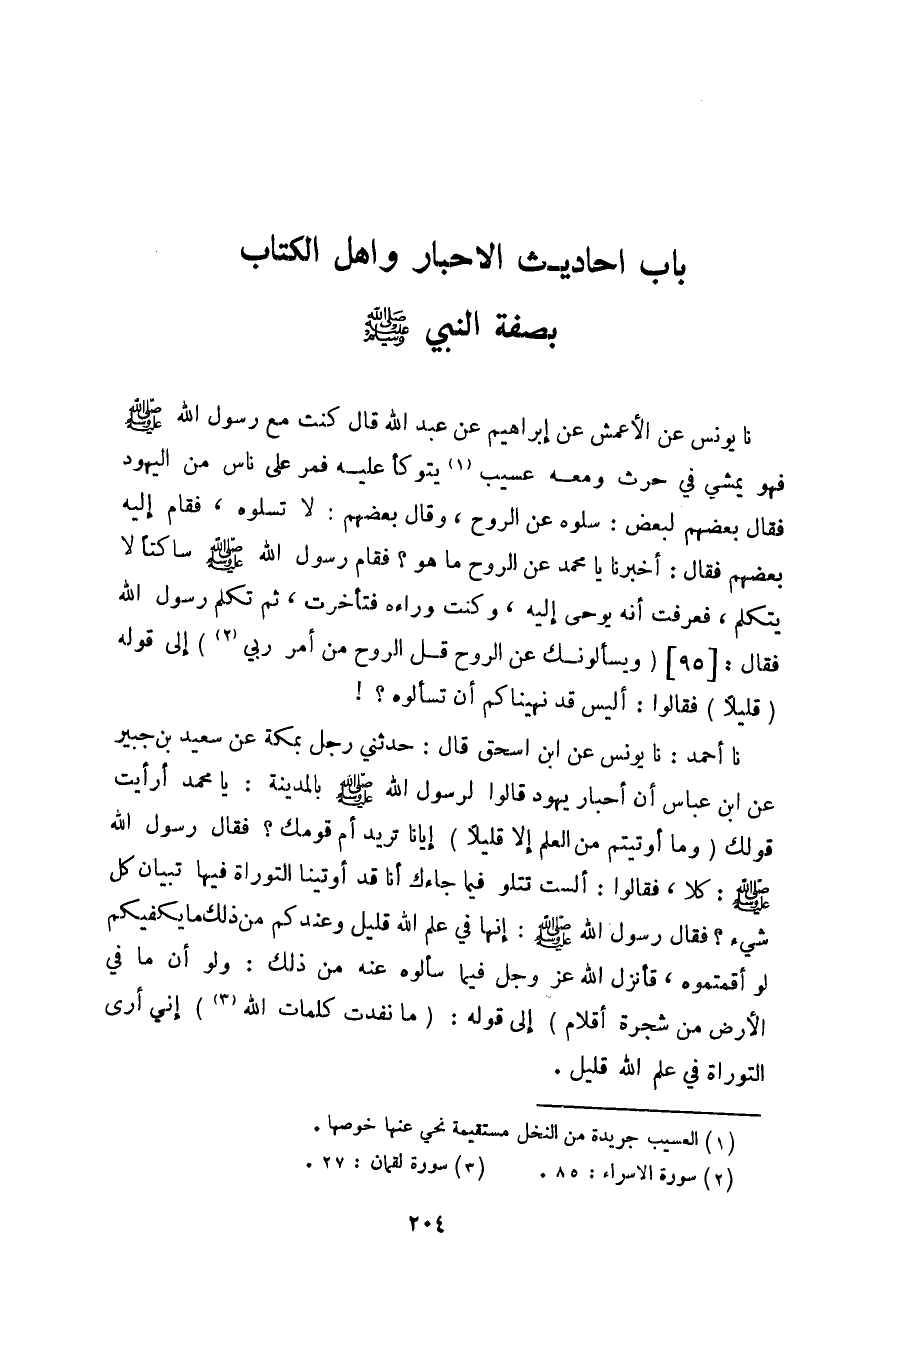 باب احاديث الاحبار واهل الكتاب
بصفة النبي ﷺ
نا يونس عن الأعمش عن إبراهيم عن عبد الله قال كنت مع رسول الله ﷺ
فهو يمشي في حرث ومعه عسيب (١) يتوكأ عليه فمر على ناس من اليهود
فقال بعضهم لبعض : سلوه عن الروح ، وقال بعضهم : لا تسلوه ، فقام إليه
بعضهم فقال : أخبرنا يا محمد عن الروح ما هو ؟ فقام رسول الله ﷺ ساكتاً لا
يتكلم ، فعرفت أنه يوحى إليه ، وكنت وراءه فتأخرت ، ثم تكلم رسول الله
فقال : [٩٥] ( ويسألونك عن الروح قل الروح من أمر ربي (٢) ) إلى قوله
( قليلاً ) فقالوا : أليس قد نهيناكم أن تسألوه ؟ !
نا أحمد : نا يونس عن ابن اسحق قال : حدثني رجل بمكة عن سعيد بن جبير
عن ابن عباس أن أحبار يهود قالوا لرسول الله ﷺ بالمدينة : يا محمد أرأيت
قولك ( وما أوتيتم من العلم إلا قليلاً ) إيانا تريد أم قومك ؟ فقال رسول الله
ﷺ : كلا ، فقالوا : ألست تتلو فيما جاءك أنا قد أوتينا التوراة فيها تبيان كل
شيء ؟ فقال رسول الله ﷺ : إنها في علم الله قليل وعندكم من ذلك ما يكفيكم
لو أقمتموه ، فأنزل الله عز وجل فيما سألوه عنه من ذلك : ولو أن ما في
الأرض من شجرة أقلام ) إلى قوله : ( ما نفدت كلمات الله (٣) ) إني أرى
التوراة في علم الله قليل .
(١) العسيب جريدة من النخل مستقيمة نحي عنها خوصها .
(٢) سورة الاسراء : ٨٥ . (٣) سورة لقمان : ٢٧ .
٢٠٤